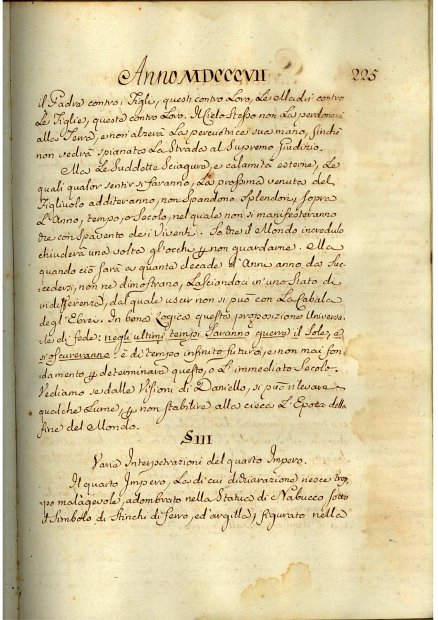 Anno MDCCCVII 225
il Padre contro i Figli, questi contro Loro, Le Madri contro
Le Figlie, queste contro Loro. Il Cielo stesso non La perdonerà
alla Terra, e non alzerà La percuotrice sua mano, finchè
non vedrà spianata La Strada al Supremo Giudizio.
Ma Le Suddotte Sciagure, e calamità esterne, Le
quali qualor sentir si faranno, La prossima venuta del
Figliuolo additeranno, non spandono Splendori sopra
L'Anno, tempo, o Secolo, nel quale non si manifesteranno
che con Spavento de i Viventi. So che il Mondo incredulo
chiuderà una volta gl'occhi p non guardarne. Ma
quando ciò sarà a quante decade d'Anni anno da suc-
cedersi, non ne dimostrano, Lasciandoci in uno Stato di
indifferenza, dal quale uscir non si può con La Cabala
degl'Ebrei. In bona Logica questa proposizione Universa-
le di fede: negli ultimi tempi Saranno guerre il Sole, e
si oscureranno: è di tempo infinito futuro, e non mai fon-
damento p determinare questo, o L'immediato Secolo.
Vediamo se dalle Visioni di Daniello, si può rilevare
qualche Lume, p non stabilire alla cieca L'Epoca della
fine del Mondo.
§ III
Varie Interpetrazioni del quarto Impero.
Il quarto Impero, La di cui dichiarazione riesce trop-
po malagevole, adombrato nella Statua di Nabucco sotto
il Simbolo di Stinchi di ferro, ed argilla; figurato nella